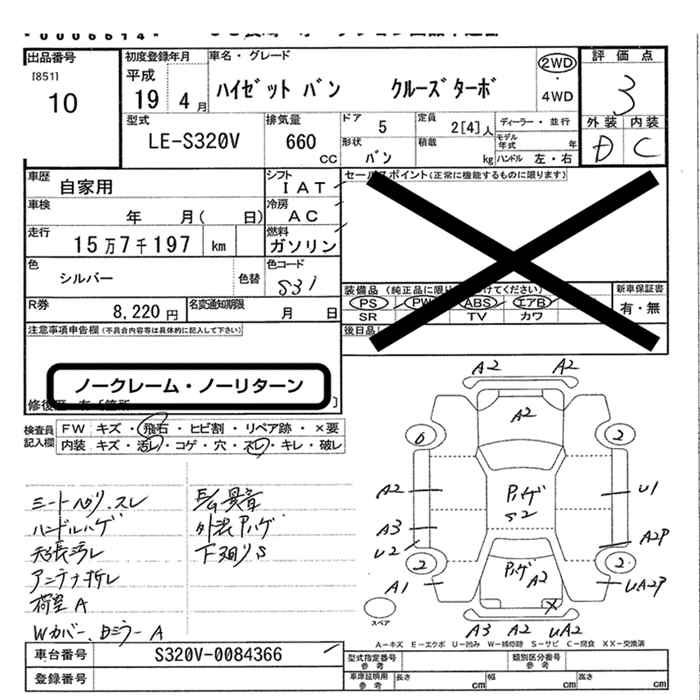 出品番号
[851]
10
初度登録年月
平成
19 4月
車名・グレード
ハイゼット バン クルーズターボ
2WD
・
4WD
評価点
3
外装 内装
D C
型式
LE-S320V
排気量
660
CC
ドア
5
形状
バン
定員
2[4]人
積載
kg
ディーラー・並行
モデル年式 年
ハンドル 左・右
車歴
自家用
シフト
IAT
車検
年 月( 日)
冷房
AC
走行
15万7千197 km
燃料
ガソリン
色
シルバー
色替
色コード
S31
R券
8,220円
名変通知期限
月 日
セールスポイント(正常に機能するものに限ります)
装備品
PS PW ABS エアB
SR TV カワ
後日品
新車保証書
有・無
注意事項申告欄(不具合内容等は具体的に記入して下さい)
ノークレーム・ノーリターン
検査員記入欄
FW キズ・飛石・ヒビ割・リペア跡・×要
内装 キズ・汚レ・コゲ・穴・スレ・キレ・破レ
シートヘタリ、スレ
ハンドルハゲ
天張汚レ
アンテナ折レ
荷室A
Wカバー、Dミラー A
外装Pハゲ
下廻りS
A2 A2
A2
6 2
A2 U1
Pハゲ
S2
A3
U2 A2P
2 2
Pハゲ
A2
A1 UA2P
X
A3 A2 UA2
スペア
A-キズ E-エクボ U-凹み W-補修跡 S-サビ C-腐食 XX-交換済
車台番号
S320V-0084366
登録番号
型式指定番号
参考
類別区分番号
参考
車庫証明用
参考
長さ cm
幅 cm
高さ cm